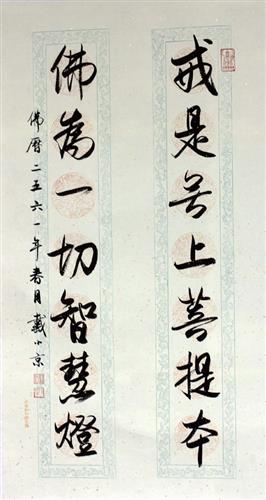 戒是无上菩提本
佛為一切智慧燈
佛曆二五六一年春月戴小京